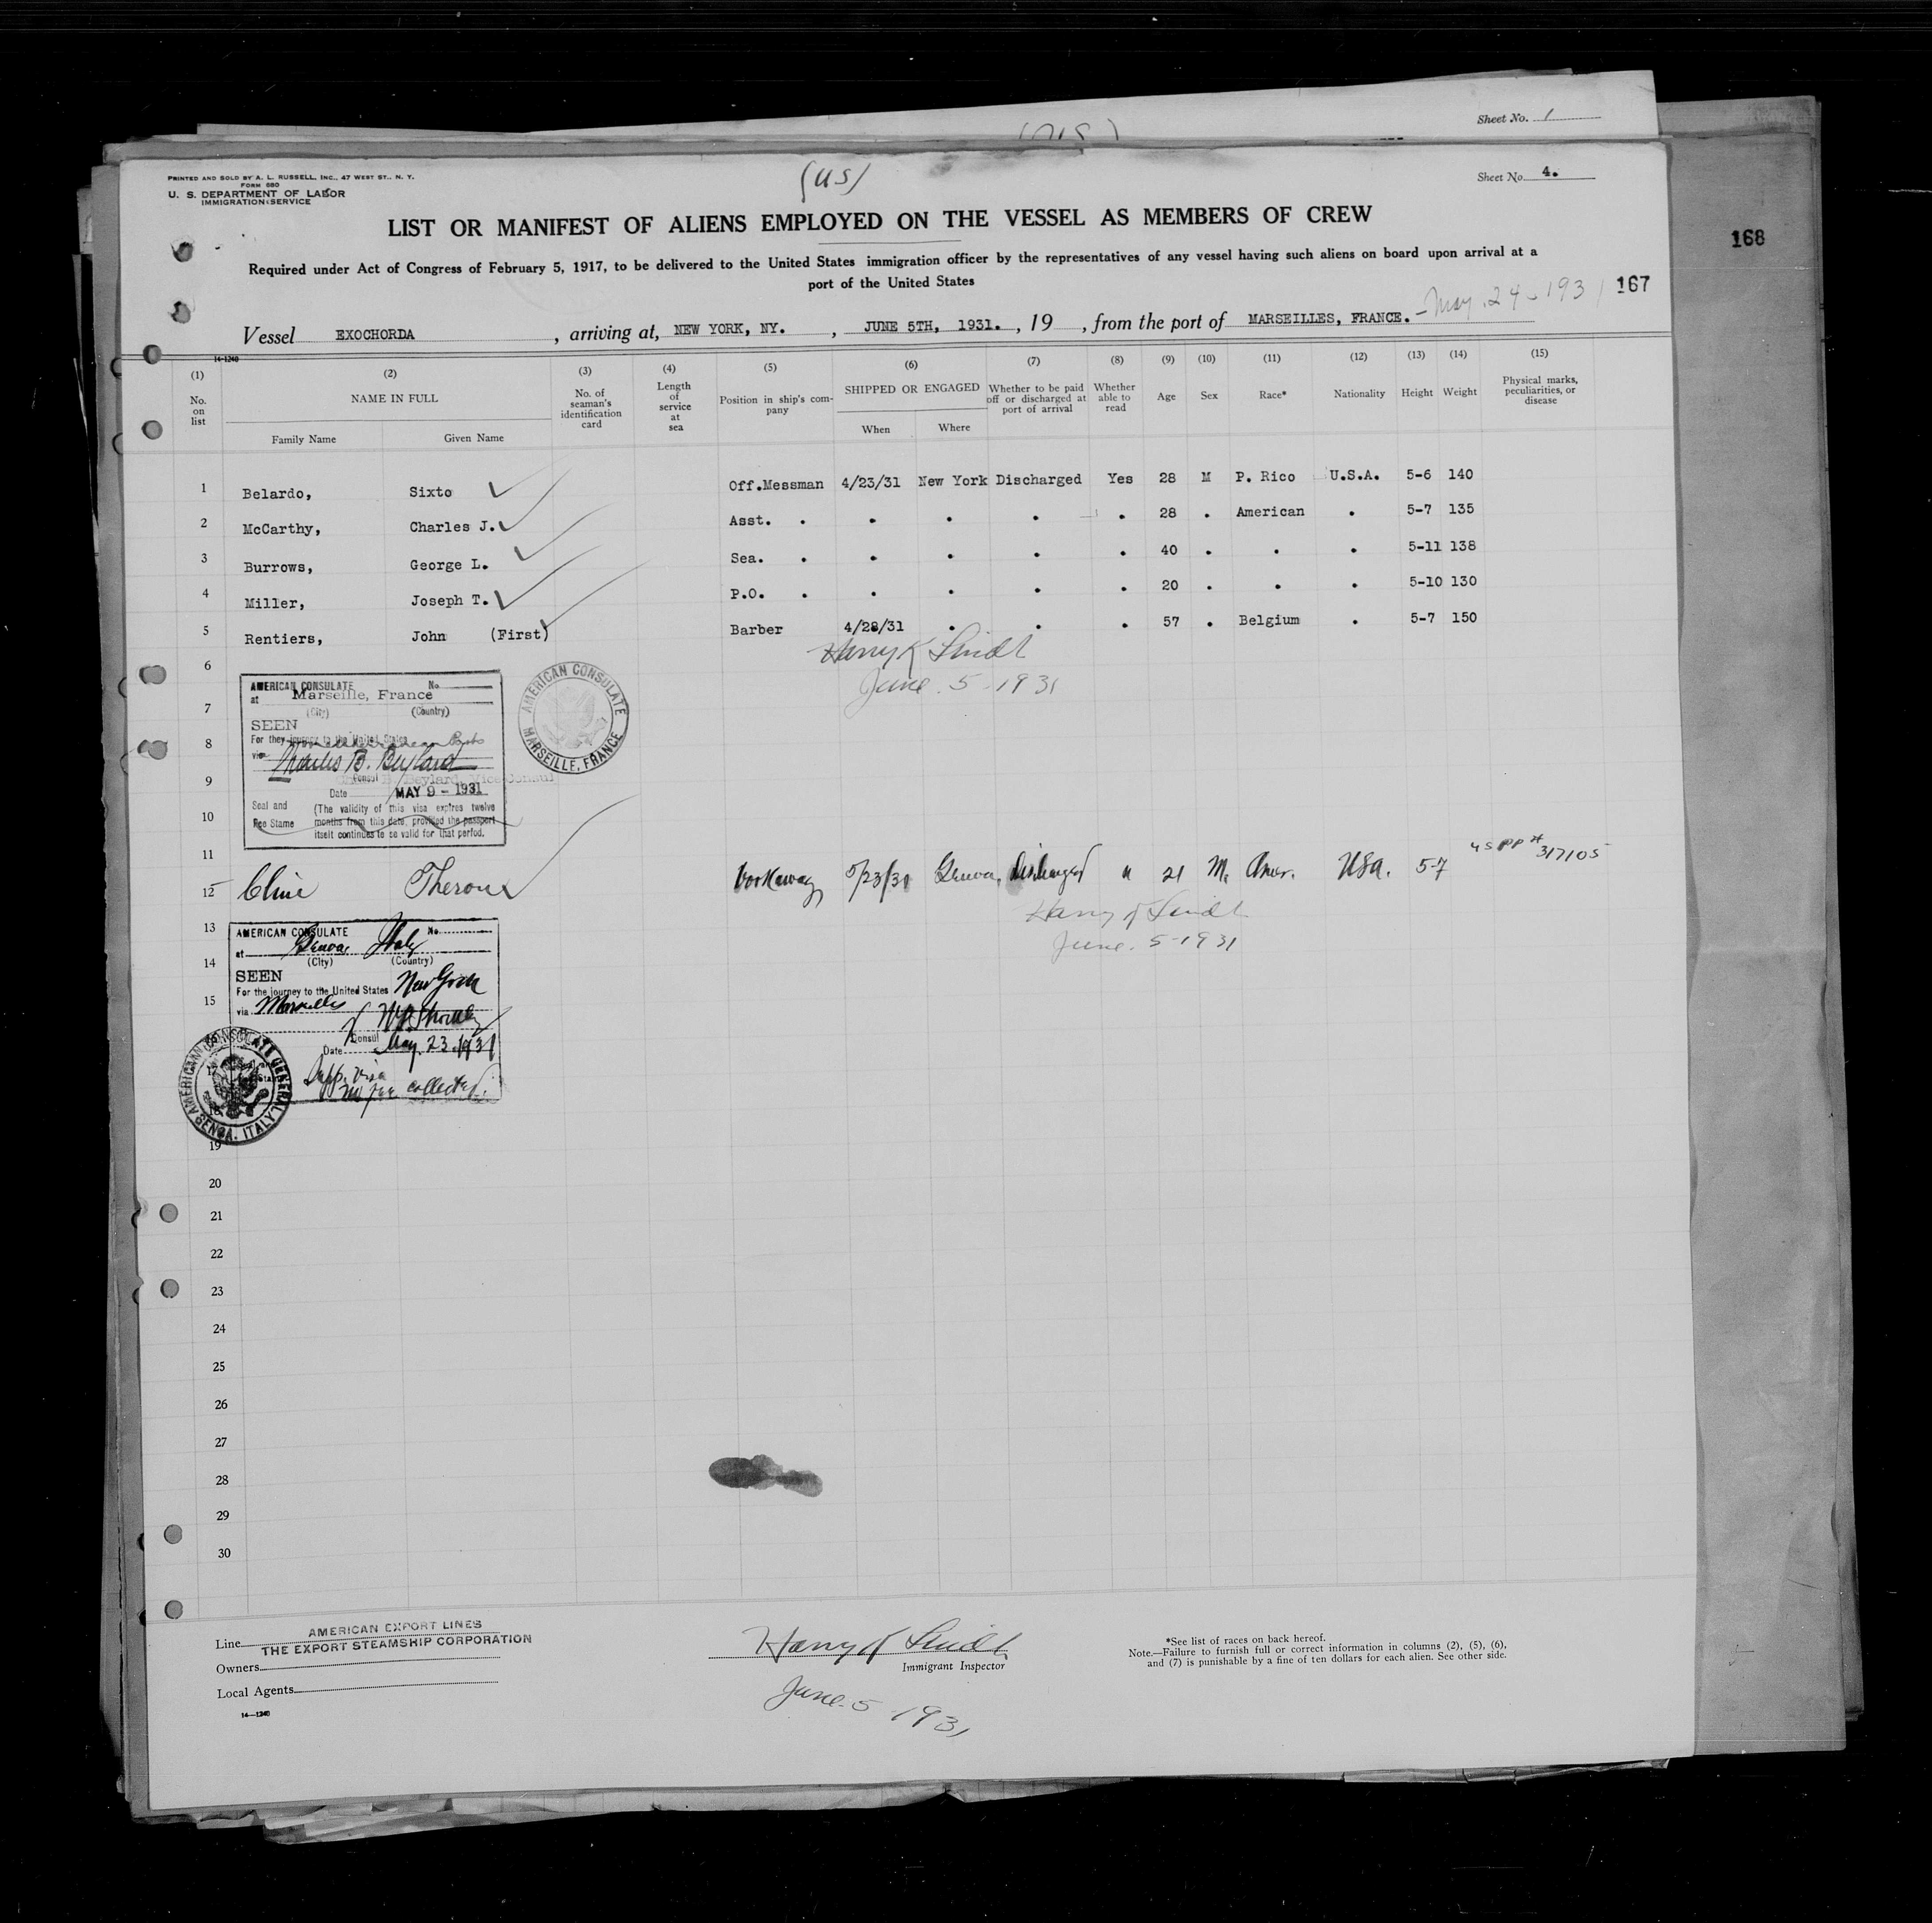 Sheet No. 1
PRINTED AND SOLD BY A. L. RUSSELL, INC., 47 WEST ST., N. Y.
FORM 680
U. S. DEPARTMENT OF LABOR
IMMIGRATION SERVICE
(US)
Sheet No. 4.
LIST OR MANIFEST OF ALIENS EMPLOYED ON THE VESSEL AS MEMBERS OF CREW
168
Required under Act of Congress of February 5, 1917, to be delivered to the United States immigration officer by the representatives of any vessel having such aliens on board upon arrival at a
port of the United States
167
Vessel EXOCHORDA, arriving at, NEW YORK, NY., JUNE 5TH, 1931., 19 , from the port of MARSEILLES, FRANCE. - May. 24 - 1931
14-1240
(1) (2) (3) (4) (5) (6) (7) (8) (9) (10) (11) (12) (13) (14) (15)
No. on list NAME IN FULL No. of seaman's identification card Length of service at sea Position in ship's company SHIPPED OR ENGAGED Whether to be paid off or discharged at port of arrival Whether able to read Age Sex Race* Nationality Height Weight Physical marks, peculiarities, or disease
Family Name Given Name When Where
1 Belardo, Sixto Off.Messman 4/23/31 New York Discharged Yes 28 M P. Rico U.S.A. 5-6 140
2 McCarthy, Charles J. Asst. . . . . . 28 . American . 5-7 135
3 Burrows, George L. Sea. . . . . . 40 . . . 5-11 138
4 Miller, Joseph T. P.O. . . . . . 20 . . . 5-10 130
5 Rentiers, John (First) Barber 4/28/31 . . . 57 . Belgium . 5-7 150
6
Harry K Lindt
June. 5-1931
7
8
9
10
AMERICAN CONSULATE No.
at Marseille, France
(City) (Country)
SEEN
For the journey to the United States
via
Charles B. Beylard
Consul B. Beylard, Vice Consul
Date MAY 9 - 1931
Seal and Fee Stamp (The validity of this visa expires twelve
months from this date, provided the passport
itself continues to be valid for that period.
AMERICAN CONSULATE
MARSEILLE, FRANCE
11
US PP # 317105
12 Cline Theron Workaway 5/23/31 Genoa, Discharged " 21 M. Amer. USA. 5-7
Harry K Lindt
June. 5-1931
13
14
15
AMERICAN CONSULATE No.
at Genoa Italy
(City) (Country)
SEEN
For the journey to the United States New York
via Marseilles
Consul
Date May 23 1931
Supp. visa
no fee collected.
AMERICAN CONSULATE GENERAL
GENOA, ITALY
18
19
20
21
22
23
24
25
26
27
28
29
30
Line AMERICAN EXPORT LINES
THE EXPORT STEAMSHIP CORPORATION
Owners
Local Agents
14-1240
Harry K Lindt
Immigrant Inspector
June 5 - 1931
*See list of races on back hereof.
Note.—Failure to furnish full or correct information in columns (2), (5), (6),
and (7) is punishable by a fine of ten dollars for each alien. See other side.